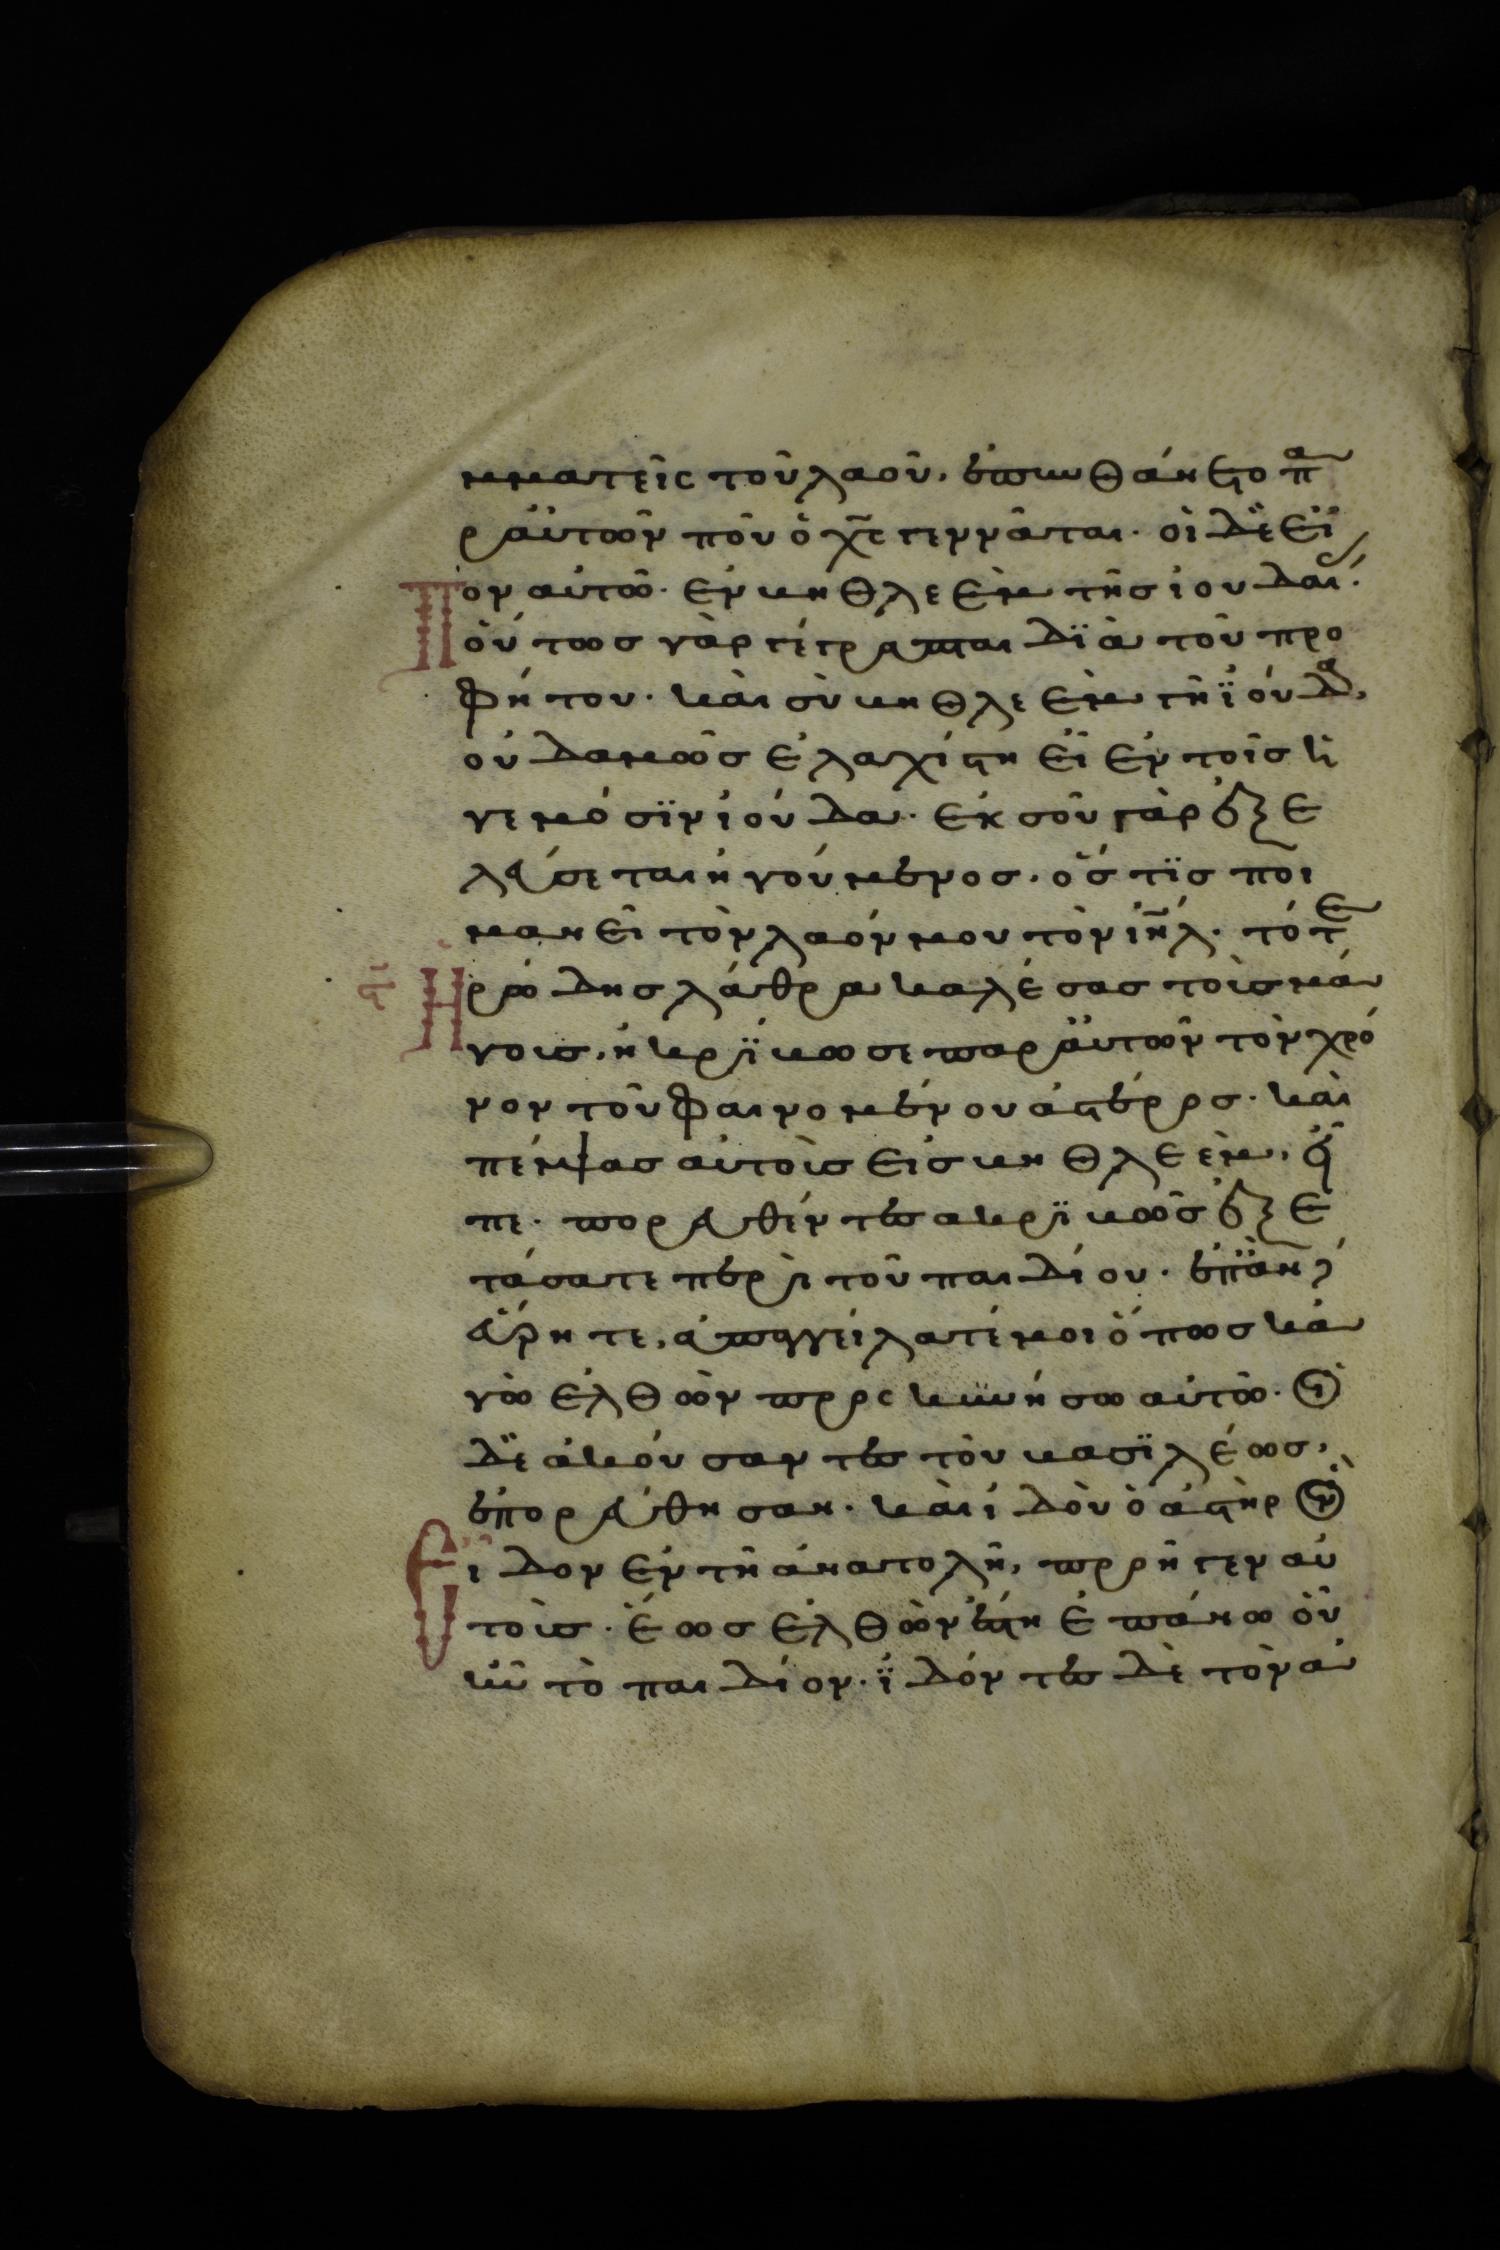 μματεῖς τοῦ λαοῦ. ἐπυνθάνετο πα
ρ αὐτῶν ποῦ ὁ χς γεννᾶται. οἱ δὲ εἶ
πον αὐτῶ. ἐν βηθλεὲμ τῆς ἰουδαί.
οὕτως γὰρ γέγραπται δϊὰ τοῦ προ
φήτου. καὶ σὺ βηθλεὲμ γῆ ϊούδα,
οὐδαμῶς ἐλαχίστη εἶ ἐν τοῖς ἡ
γεμόσϊν ἰούδα. ἐκ σοῦ γὰρ ἐξε
λεύσεται ἡγούμενος. ὅστϊς ποι
μανεῖ τὸν λαόν μου τὸν ιηλ. τότε
ηρώδης λάθρα καλέσας τοὺς μά
γους, ἠκρϊβωσε παρ αὐτῶν τὸν χρό
νον τοῦ φαινομένου ἀστέρος. καὶ
πέμψας αὐτοὺς εἰς βηθλεὲμ, εἶ
πε. πορευθέντες ακρϊβῶς ἐξε
τάσατε περὶ τοῦ παιδίου. ἐπὰν
εὕρητε, ἀπαγγείλατέ μοι ὅπως κἀ
γὼ ἐλθὼν προς κυνήσω αὐτῶ. οἱ
δὲ ἀκούσαντες τοῦ βασϊλέως,
ἐπορεύθησαν. καὶ ἰδοὺ ὁ ἀστὴρ ὃν
εἶδον ἐν τῆ ἀνατολῆ, προῆγεν αὐ
τοὺς. ἕως ἐλθὼν ἔστη ἐπάνω οὗ
ἦν τὸ παιδίον. ϊδόντες δὲ τὸν ἀ